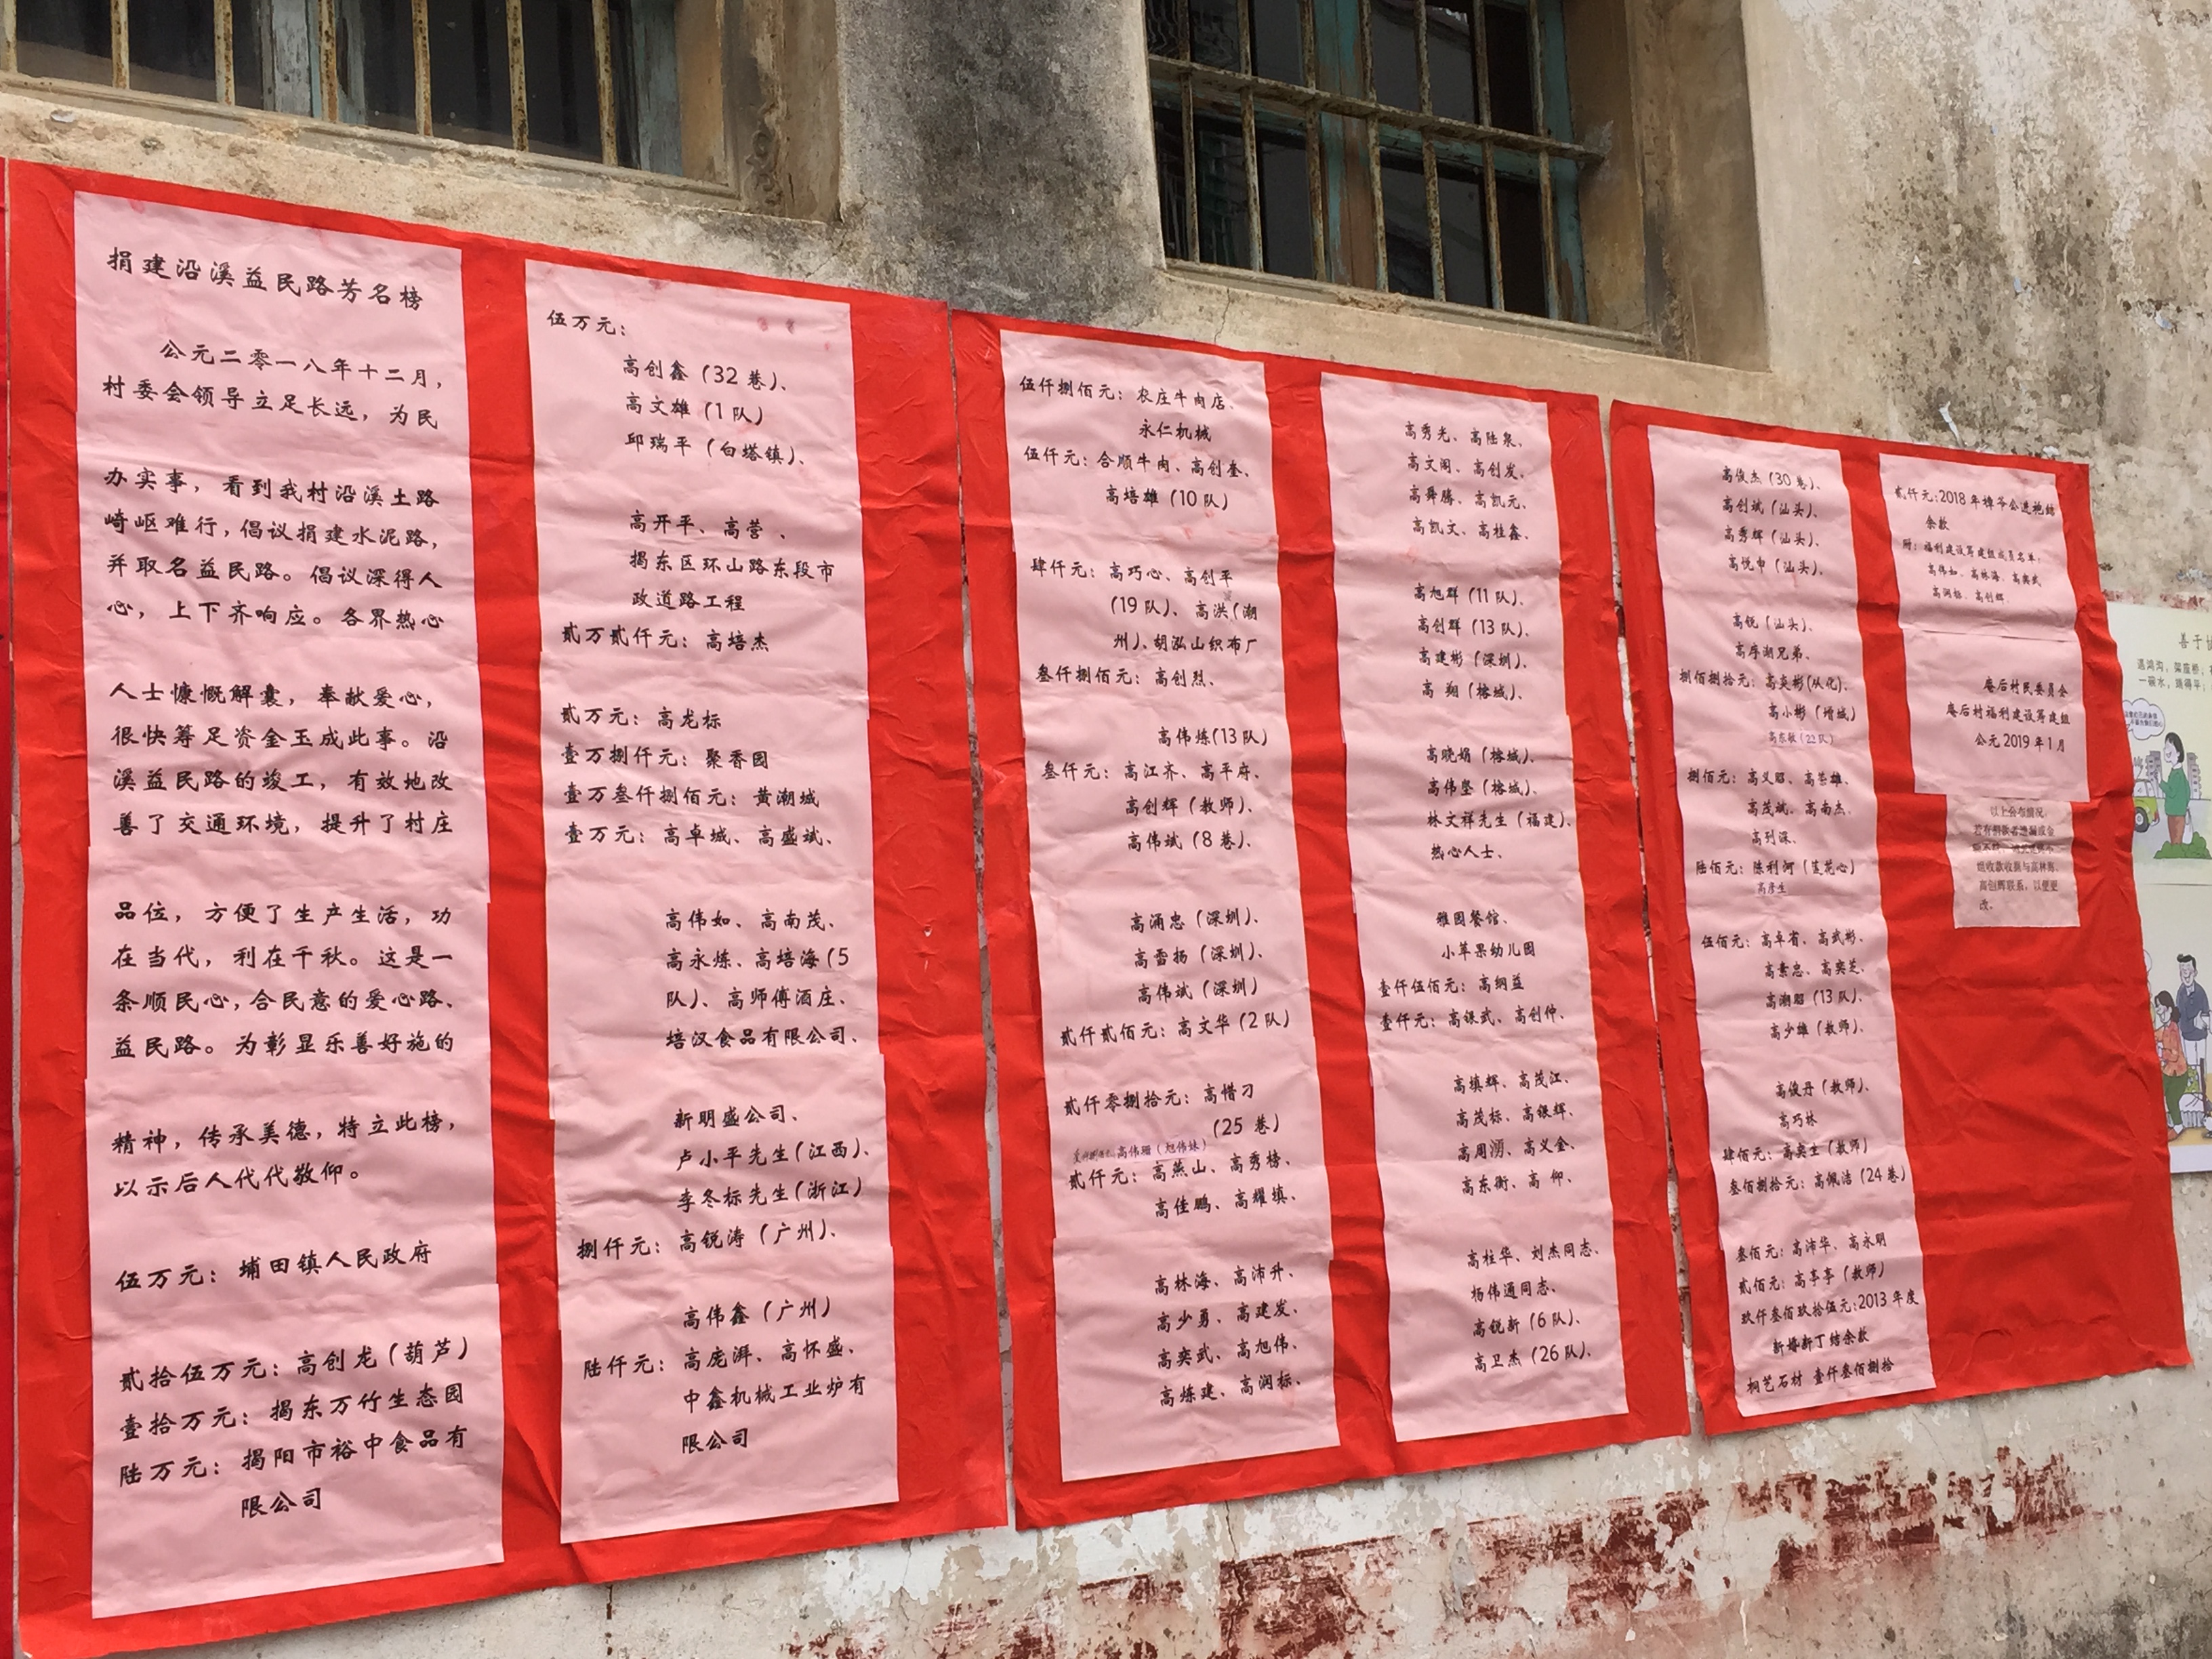 捐建沿溪益民路芳名榜
公元二零一八年十二月，
村委会领导立足长远，为民
办实事，看到我村沿溪土路
崎岖难行，倡议捐建水泥路，
并取名益民路。倡议深得人
心，上下齐响应。各界热心
人士慷慨解囊，奉献爱心，
很快筹足资金玉成此事。沿
溪益民路的竣工，有效地改
善了交通环境，提升了村庄
品位，方便了生产生活，功
在当代，利在千秋。这是一
条顺民心，合民意的爱心路、
益民路。为彰显乐善好施的
精神，传承美德，特立此榜，
以示后人代代敬仰。
伍万元：埔田镇人民政府
贰拾伍万元：高创龙（葫芦）
壹拾万元：揭东万竹生态园
陆万元：揭阳市裕中食品有
限公司
伍万元：
高创鑫（32 巷）、
高文雄（1 队）
邱瑞平（白塔镇）、
高开平、高营 、
揭东区环山路东段市
政道路工程
贰万贰仟元：高培杰
贰万元：高龙标
壹万捌仟元：聚香园
壹万叁仟捌佰元：黄潮城
壹万元：高卓城、高盛斌、
高伟如、高南茂、
高永炼、高培海（5
队）、高师傅酒庄、
培汉食品有限公司、
新明盛公司、
卢小平先生（江西）、
李冬标先生（浙江）
捌仟元：高锐涛（广州）、
高伟鑫（广州）
陆仟元：高庞湃、高怀盛、
中鑫机械工业炉有
限公司
伍仟捌佰元：农庄牛肉店、
永仁机械
伍仟元：合顺牛肉、高创奎、
高培雄（10 队）
肆仟元：高巧心、高创平
（19 队）、高洪（潮
州）、胡泓山织布厂
叁仟捌佰元：高创烈、
高伟炼（13 队）
叁仟元：高江齐、高平府、
高创辉（教师）、
高伟斌（8 巷）、
高涌忠（深圳）、
高雪扬（深圳）、
高伟斌（深圳）
贰仟贰佰元：高文华（2 队）
贰仟零捌拾元：高惜刁
（25 巷）
高伟珊（旭伟妹）
贰仟元：高燕山、高秀榜、
高佳鹏、高耀填、
高林海、高沛升、
高少勇、高建发、
高奕武、高旭伟、
高炼建、高润标、
高秀光、高陆泉、
高文阁、高创发、
高舜腾、高凯元、
高凯文、高桂鑫、
高旭群（11 队）、
高创群（13 队）、
高建彬（深圳）、
高 翔（榕城）、
高晓娟（榕城）、
高伟坚（榕城）、
林文祥先生（福建）、
热心人士、
雅园餐馆、
小苹果幼儿园
壹仟伍佰元：高纲益
壹仟元：高银武、高创仲、
高填辉、高茂江、
高茂标、高银辉、
高周湧、高义金、
高东衡、高 仰、
高柱华、刘杰同志、
杨伟通同志、
高锐新（6 队）、
高卫杰（26 队）、
高俊杰（30 巷）、
高创斌（汕头）、
高秀辉（汕头）、
高悦申（汕头）、
高锐（汕头）、
高序潮兄弟、
捌佰捌拾元：高奕彬（从化）、
高小彬（增城）
高东敏（22队）
捌佰元：高义昭、高岱雄、
高茂斌、高南杰、
高列深、
陆佰元：陈利河（莲花心）
高彦生
伍佰元：高卓省、高武彬、
高素忠、高奕芝、
高潮昭（13 队）、
高少雄（教师）、
高俊丹（教师）、
高巧林
肆佰元：高奕生（教师）
叁佰捌拾元：高佩洁（24 巷）
叁佰元：高沛华、高永明
贰佰元：高亭亭（教师）
玖仟叁佰玖拾伍元：2013 年度
新婚新丁结余款
桐艺石材 壹仟叁佰捌拾
贰仟元：2018 年樟爷公进袍结
余款
附：福利建设筹建组成员名单：
高伟如、高林海、高奕武、
高润标、高创辉
庵后村民委员会
庵后村福利建设筹建组
公元 2019 年 1 月
以上公布情况，
若有捐款者遗漏或金
组收款收据与高林海、
高创辉联系，以便更
改。
善于
遇鸿沟，架座桥；
一碗水，端得平；